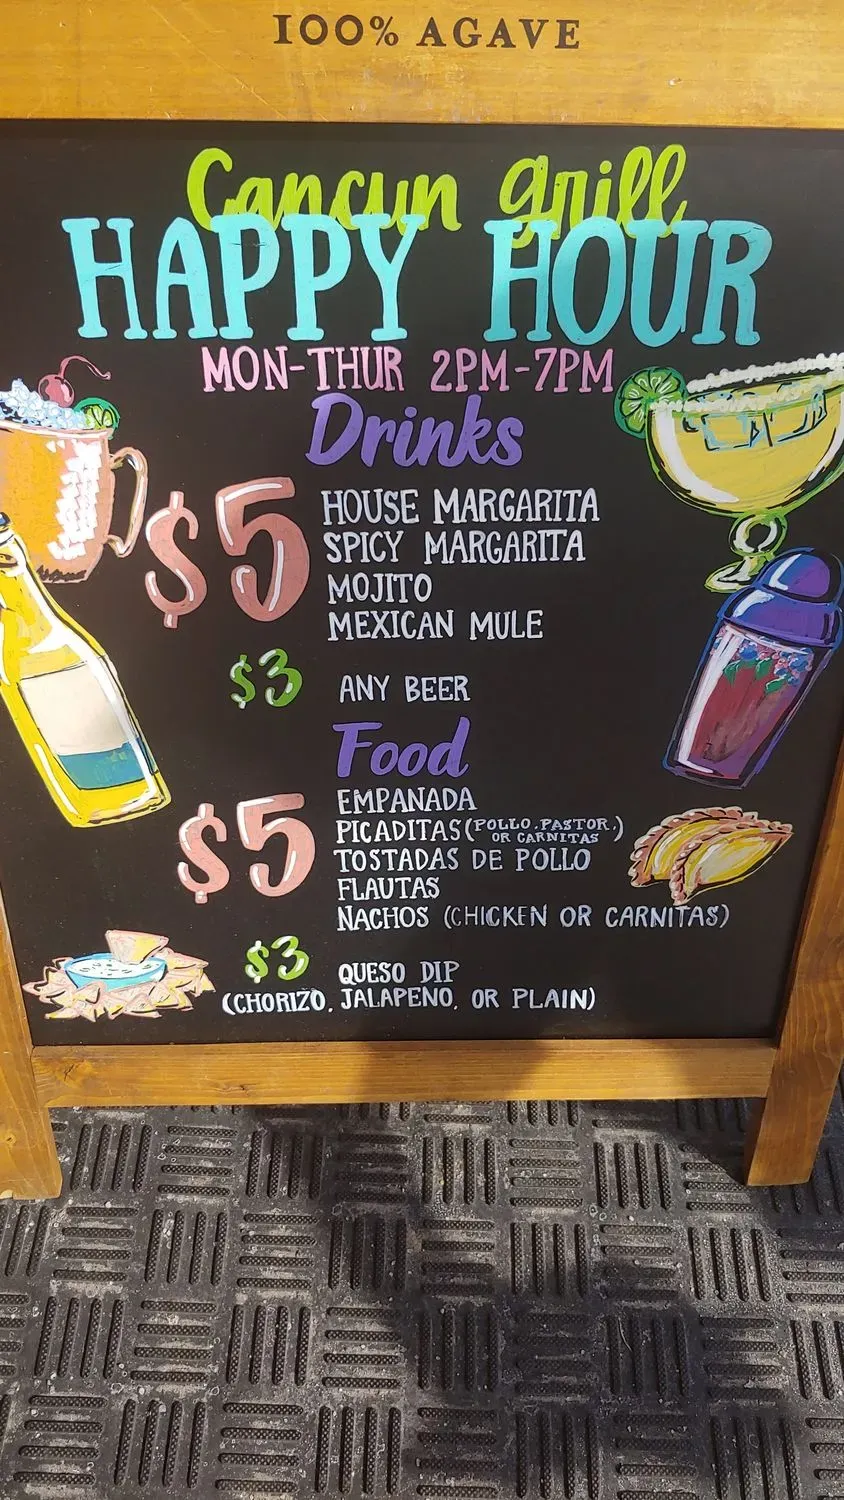 100% AGAVE
Cancun grill
HAPPY HOUR
MON-THUR 2PM-7PM
Drinks
$5 HOUSE MARGARITA
SPICY MARGARITA
MOJITO
MEXICAN MULE
$3 ANY BEER
Food
$5 EMPANADA
PICADITAS (POLLO, PASTOR, OR CARNITAS)
TOSTADAS DE POLLO
FLAUTAS
NACHOS (CHICKEN OR CARNITAS)
$3 QUESO DIP
(CHORIZO, JALAPENO, OR PLAIN)